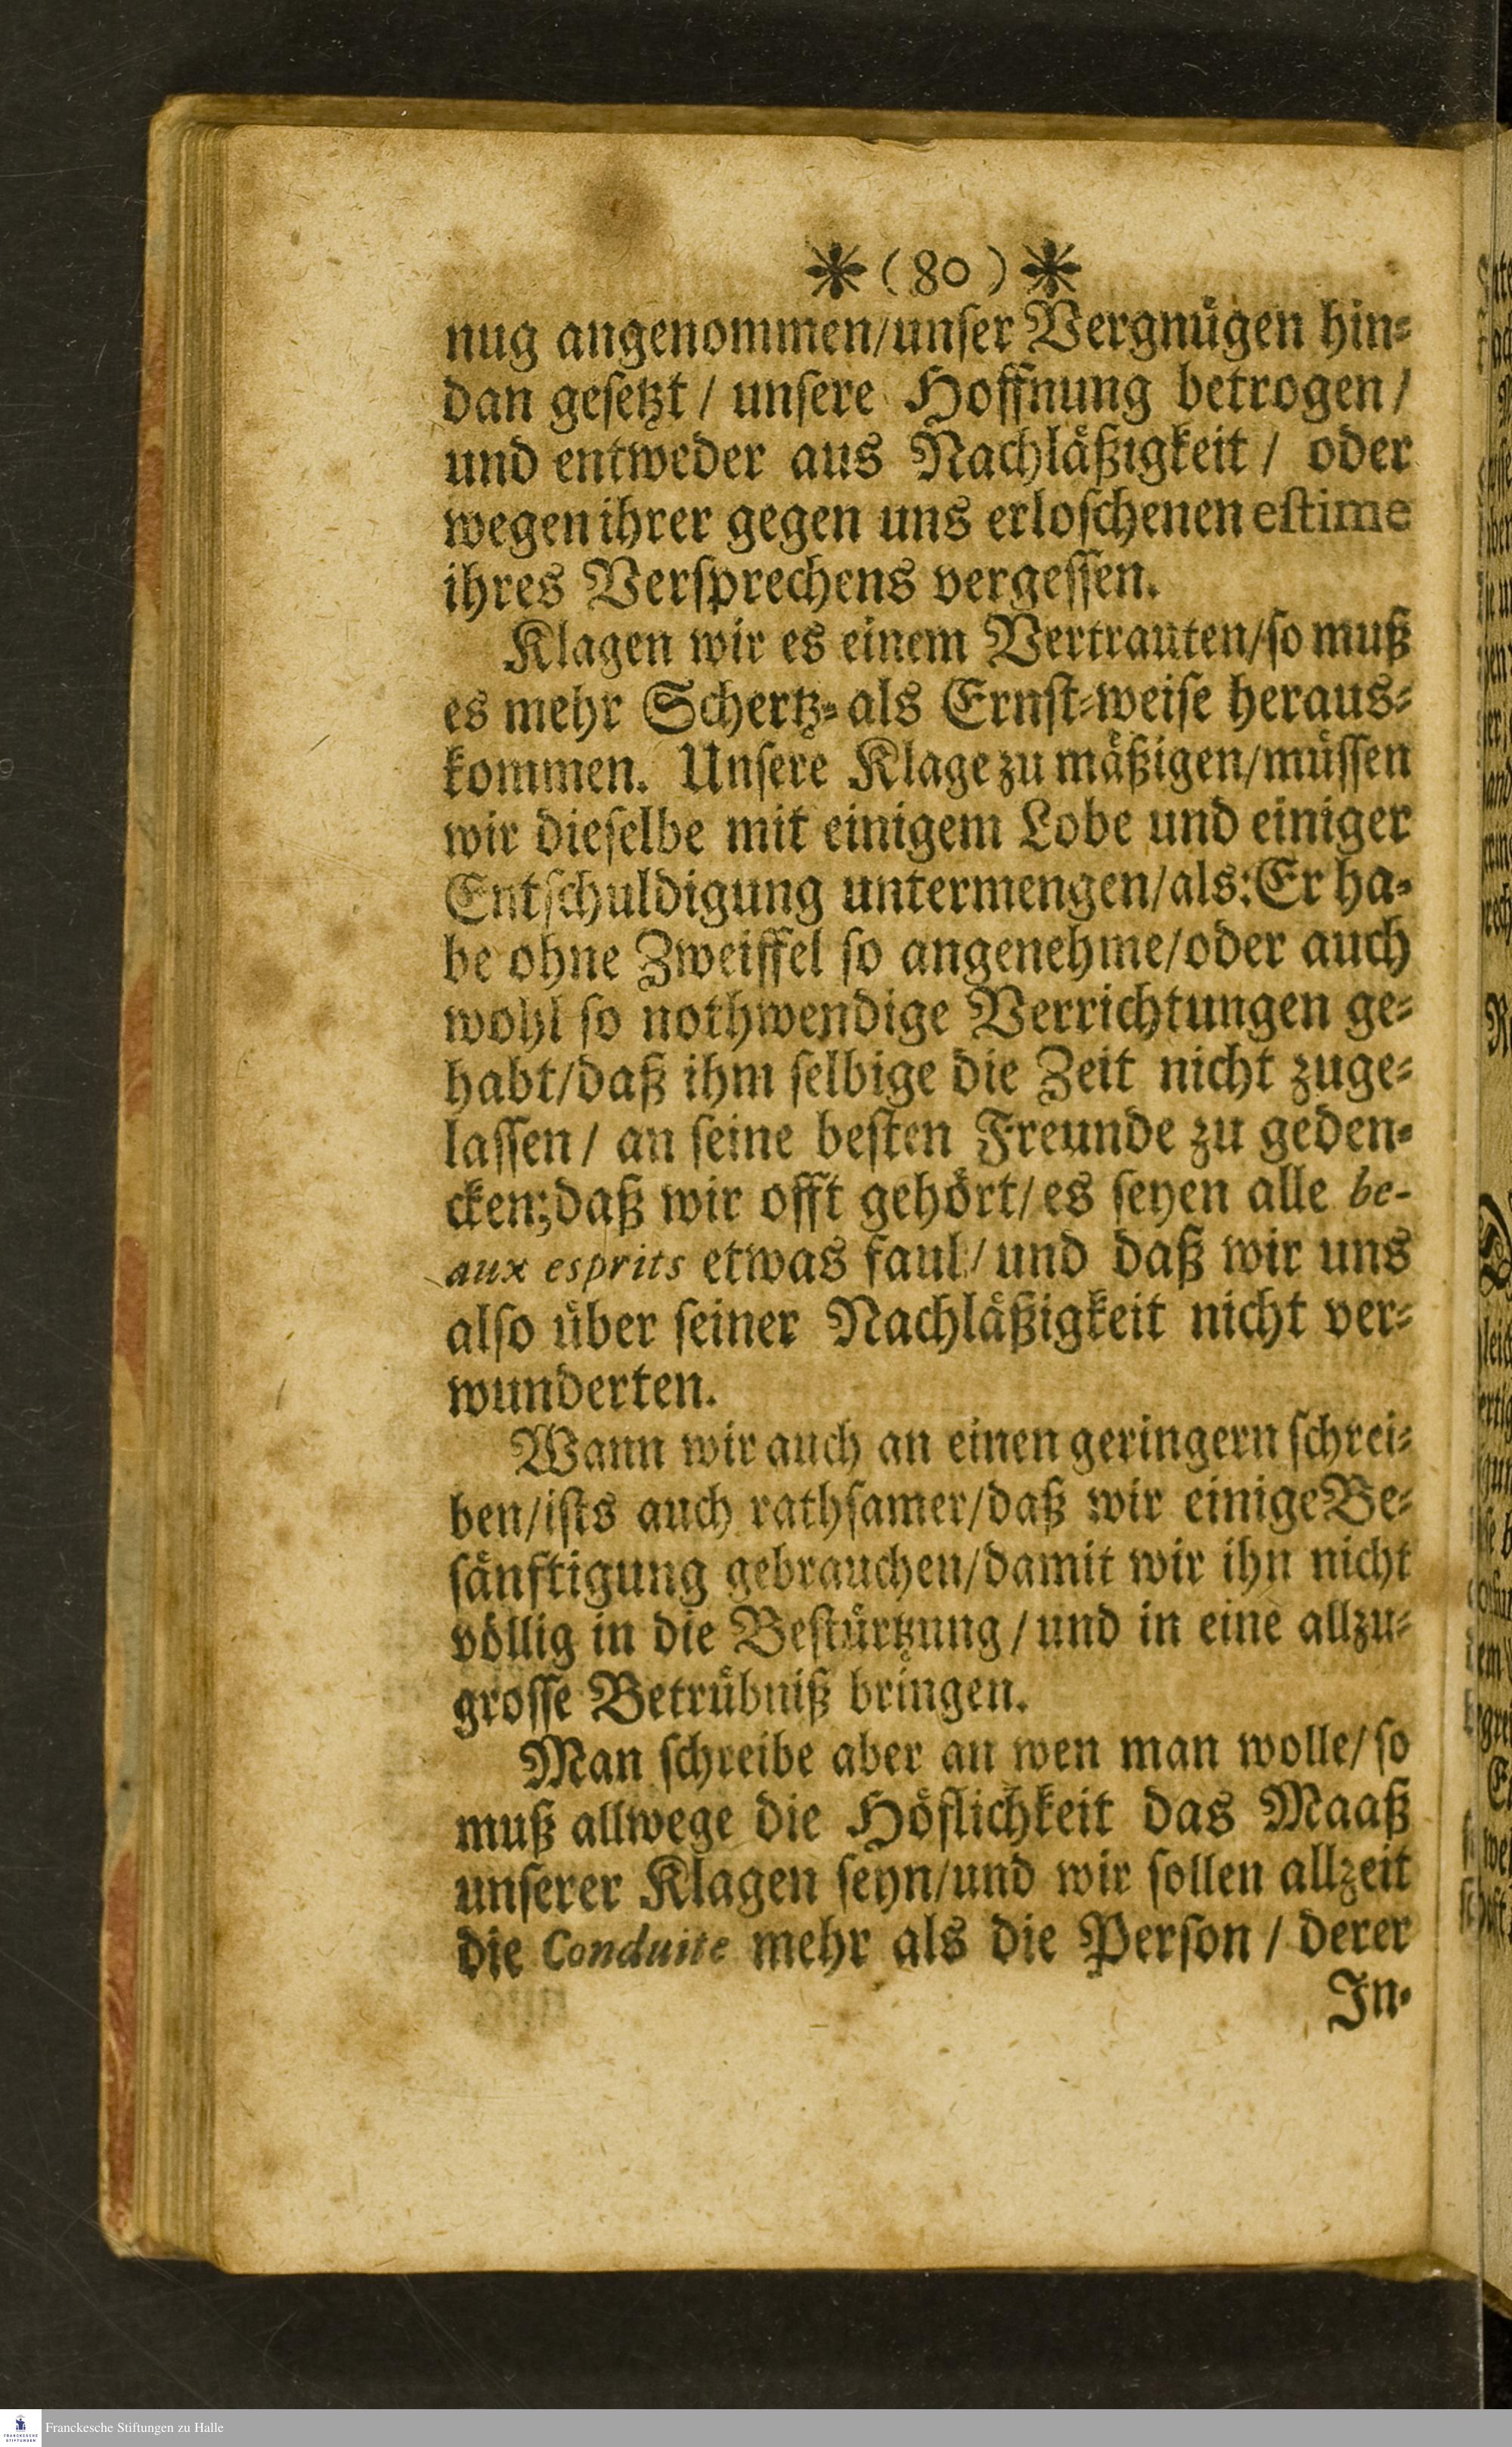 ✻ ( 80 ) ✻
nug angenommen/unſer Vergnuͤgen hin⸗
dan geſetzt / unſere Hoffnung betrogen/
und entweder aus Nachlaͤßigkeit / oder
wegen ihrer gegen uns erloſchenen eſtime
ihres Verſprechens vergeſſen.
Klagen wir es einem Vertrauten/ſo muß
es mehr Schertz⸗ als Ernſt⸗weiſe heraus⸗
kommen. Unſere Klage zu maͤßigen/muͤſſen
wir dieſelbe mit einigem Lobe und einiger
Entſchuldigung untermengen/als: Er ha⸗
be ohne Zweiffel ſo angenehme/oder auch
wohl ſo nothwendige Verrichtungen ge⸗
habt/daß ihm ſelbige die Zeit nicht zuge⸗
laſſen/ an ſeine beſten Freunde zu geden⸗
cken;daß wir offt gehoͤrt/ es ſeyen alle be-
aux esprits etwas faul/ und daß wir uns
alſo uͤber ſeiner Nachlaͤßigkeit nicht ver⸗
wunderten.
Wann wir auch an einen geringern ſchrei⸗
ben/iſts auch rathſamer/daß wir einige Be⸗
ſaͤnftigung gebrauchen/damit wir ihn nicht
voͤllig in die Beſtuͤrtzung / und in eine allzu⸗
groſſe Betruͤbniß bringen.
Man ſchreibe aber an wen man wolle/ ſo
muß allwege die Hoͤflichkeit das Maaß
unſerer Klagen ſeyn/und wir ſollen allzeit
die Conduite mehr als die Perſon / derer
In⸗
Franckesche Stiftungen zu Halle